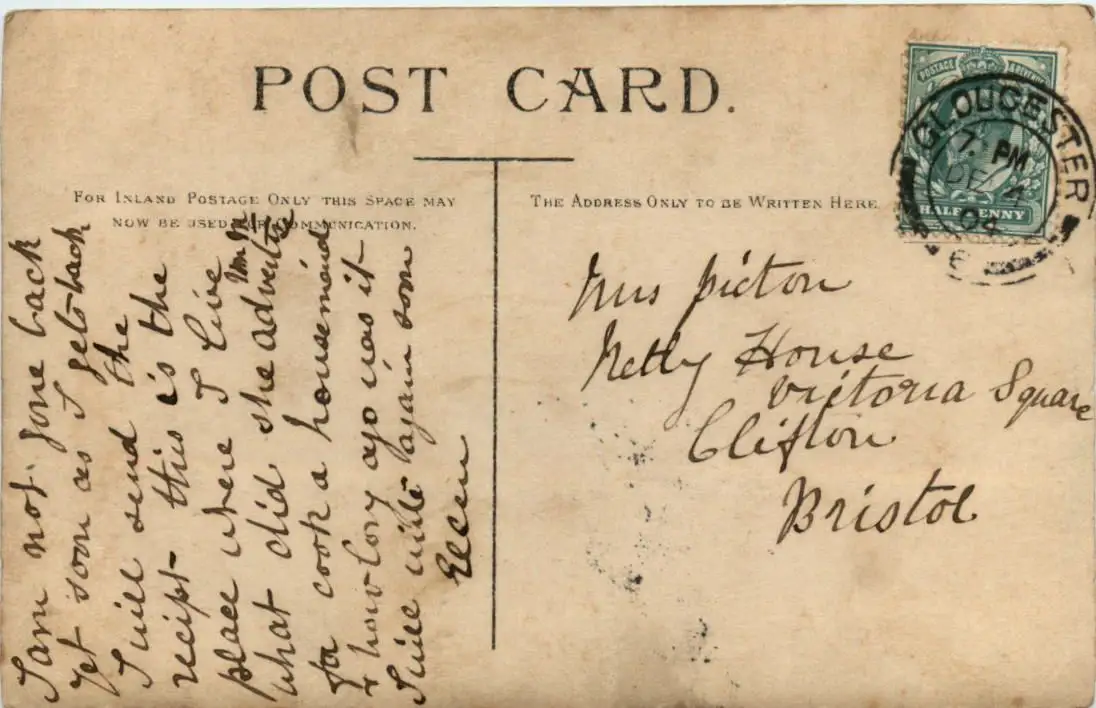 POST CARD.
FOR INLAND POSTAGE ONLY THIS SPACE MAY
NOW BE USED FOR COMMUNICATION.
THE ADDRESS ONLY TO BE WRITTEN HERE
POSTAGE & REVENUE
HALFPENNY
GLOUCESTER
7. PM
DE 4
04
6
I am not gone back
yet soon as I get back
I will send the
recipt this is the
place where I live
what did she advertise
for cook a housemaid
& how long ago was it
I will write again soon
Ellen
Mrs Picton
Netly House
Victoria Square
Clifton
Bristol